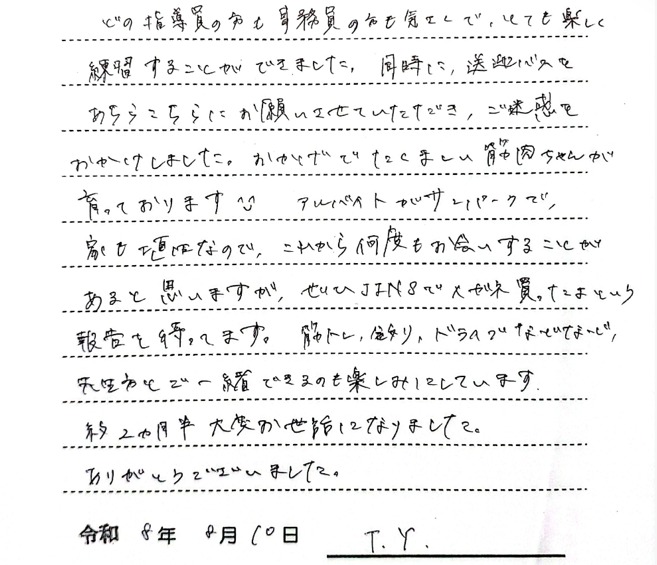 どの指導員の方も事務員の方も気さくで、とても楽しく
練習することができました。同時に、送迎バスを
あちらこちらにお願いさせていただき、ご迷惑を
おかけしました。おかげでたくましい筋肉ちゃんが
育っております アルバイトがサンパークで、
家も なので、これから何度もお会いすることが
あると思いますが、ぜひJINSでメガネ買ったよという
報告を待ってます。筋トレ、釣り、ドライブなどなど、
先生方とご一緒できるのも楽しみにしています。
約2カ月半大変お世話になりました。
ありがとうございました。
令和 8年 8月 10日 T.Y.